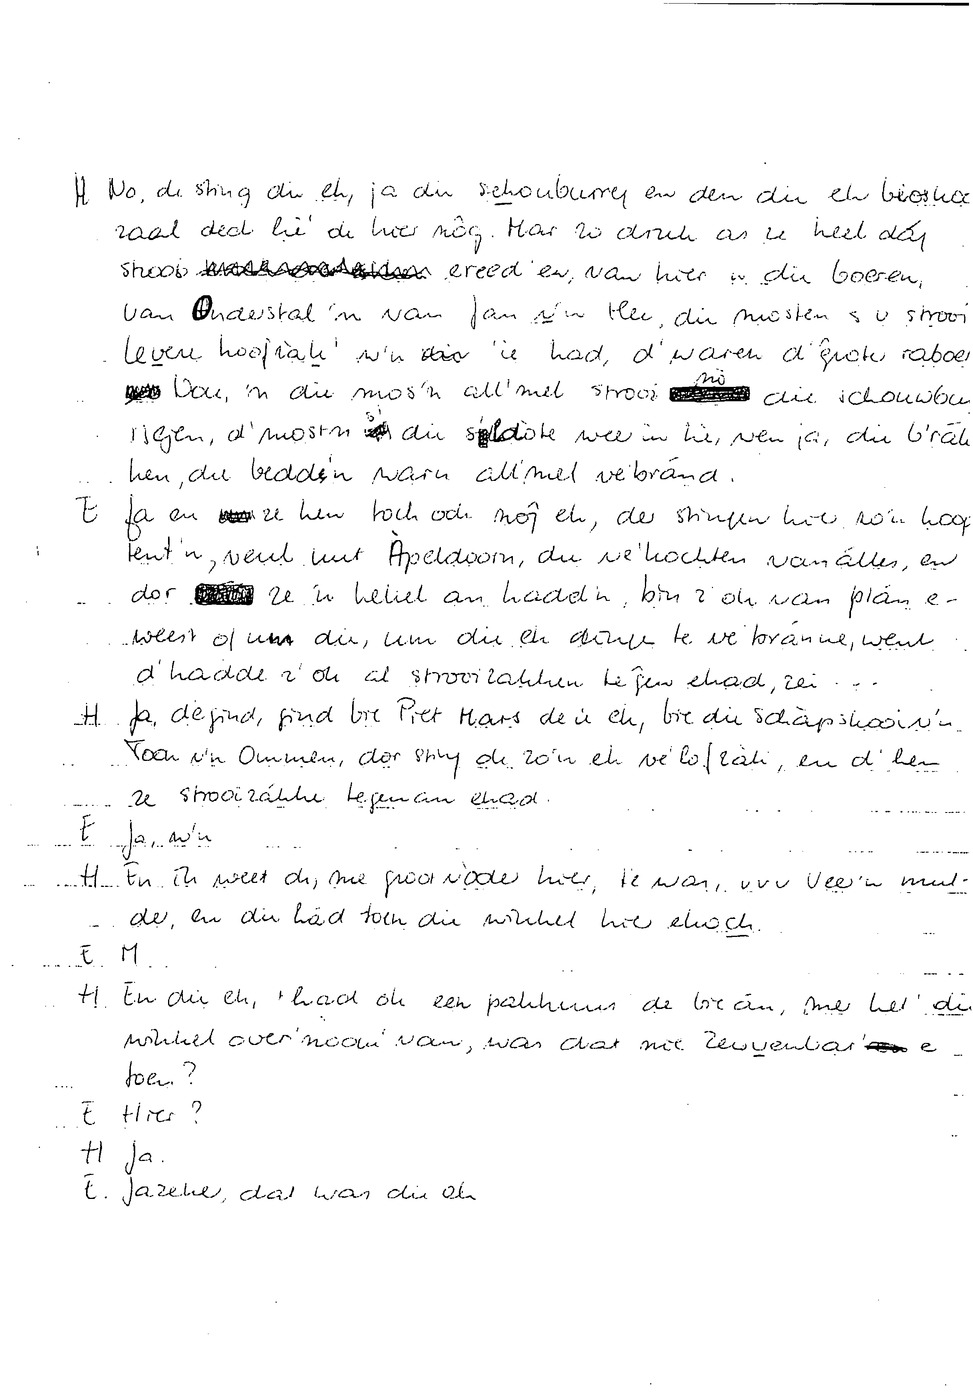 H No, de sting die eh, ja die schouburreg en den die eh bioskoo
zaal ded hie' de hier nôg. Mar zo druk as ze heel dág
strooi ereed'en, van hier n die boeren,
van Onderstal 'n van Jan v'n Hee, die mosten s v strooi
levere hoofzàk' w'n 'ie had, d'waren d'grote raboe
Dou, 'n die mos'n all'mel strooi nò die schouwbu
riejen, d'most'n die soldôte wee in lie, wen ja, die b'râk
ken, die bedd'n warn all'mel ve'bránd.
E Ja en ze hen toch ook nôg eh, der stingen hier zo'n hoop
tent'n, veul uut Àpeldoorn, die ve'kochten van álles, en
dor ze 'n hekel an hadd'n, bin z'ok van plán e-
weest of um die, um die eh dinge te ve'bránne, went
d'hadde z'ok al strooizakken tegen ehad, zei ...
H Ja, degind, gind bie Piet Mars de ie eh, bie die Schàpskooi v'n
Toon v'n Ommen, dor sting ok zo'n eh ve'lofzàk, en d'hen
ze strooizákke tegenan ehad.
E Ja, w'n
H En ik weet ok, me groovàder hier, te wan, vvv Vee'n mul-
der, en die hàd toen die winkel hier ekoch.
E M
H En die eh, 'had ok een pakhuus de bie án, mer het' die
winkel over'nood' van, was dat nie Zevvenbar' e
toen?
E Hier?
H Ja.
E. Jazeker, dat was die eh